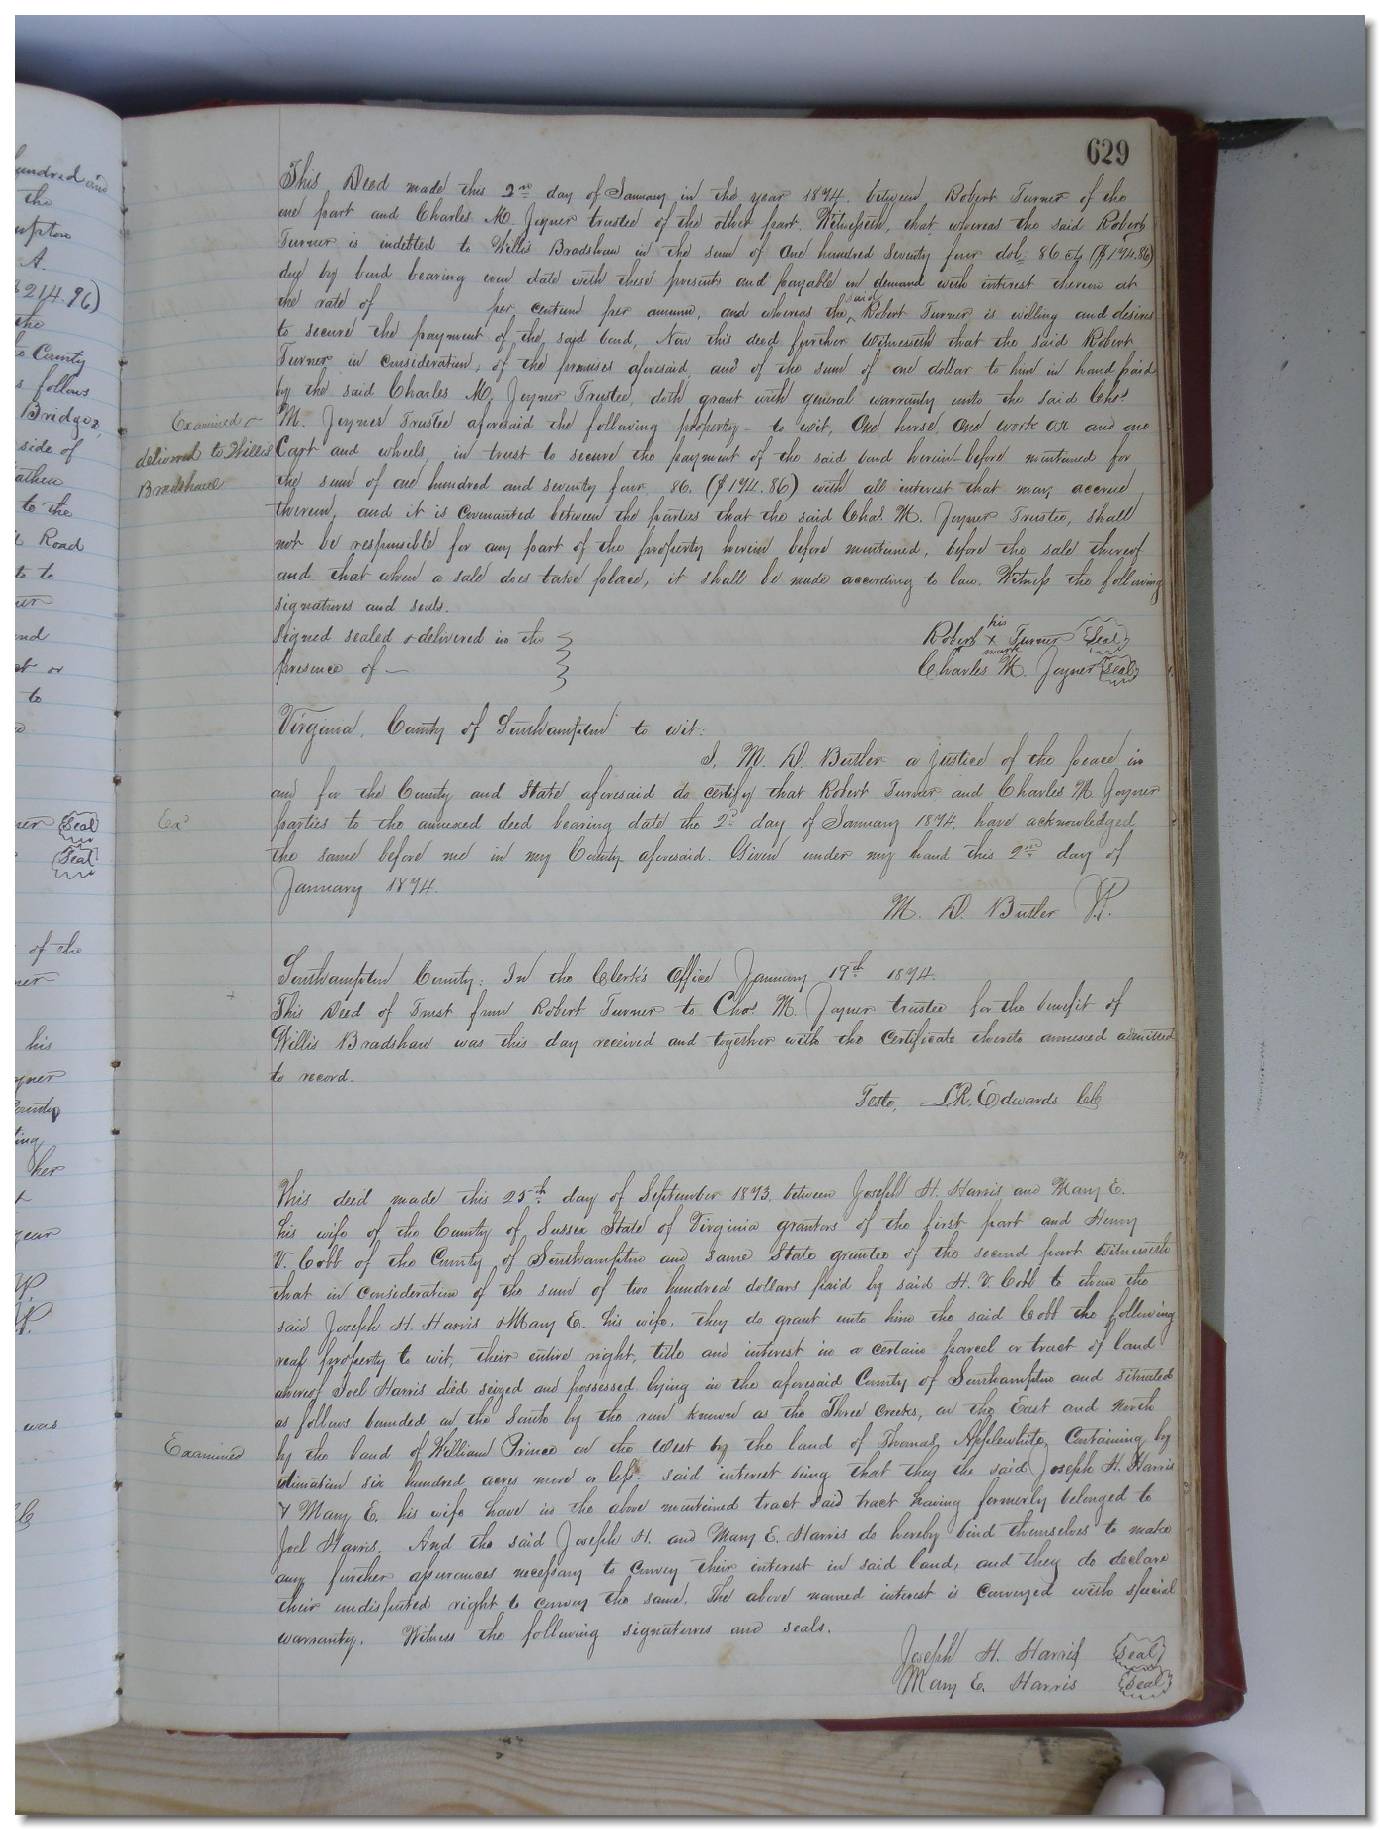 629
This Deed made this 2nd day of January in the year 1874. between Robert Turner of the
one part and Charles M. Joyner trustee of the other part. Witnesseth, that whereas the said Robert
Turner is indebted to Willis Bradshaw in the sum of One hundred Seventy four dol. 86 cts ($174.86)
due by bond bearing even date with these presents and payable on demand with interest thereon at
the rate of per centum per annum, and whereas the said Robert Turner is willing and desires
to secure the payment of the said bond, Now this deed further Witnesseth that the said Robert
Turner in consideration, of the premises aforesaid, and of the sum of one dollar to him in hand paid
by the said Charles M. Joyner Trustee, doth grant with general warranty unto the said Chas.
M. Joyner Trustee aforesaid the following property - to wit, One horse, One work ox and one
Cart and wheels, in trust to secure the payment of the said bond herein-before mentioned for
the sum of one hundred and seventy four 86. ($174.86) with all interest that may accrue
thereon, and it is covenanted between the parties that the said Chas. M. Joyner Trustee, shall
not be responsible for any part of the property herein before mentioned, before the sale thereof
and that when a sale does take place, it shall be made according to law. Witness the following
signatures and seals.
Examined &
delivered to Willis
Bradshaw
Signed sealed & delivered in the
presence of —
Robert his x mark Turner Seal
Charles M. Joyner Seal
Virginia, County of Southampton to wit:
I, M. D. Butler a justice of the peace in
and for the County and State aforesaid do certify that Robert Turner and Charles M. Joyner
parties to the annexed deed bearing date the 2d day of January 1874. have acknowledged
the same before me in my County aforesaid. Given under my hand this 2nd day of
January 1874.
Exd
M. D. Butler J.P.
Southampton County: In the Clerk's Office January 19th 1874.
This Deed of Trust from Robert Turner to Chas. M. Joyner trustee for the benefit of
Willis Bradshaw was this day received and together with the certificate thereto annexed admitted
to record.
Teste, L.R. Edwards CC
This deed made this 25th day of September 1873, between Joseph H. Harris and Mary E.
his wife of the County of Sussex State of Virginia grantors of the first part and Henry
V. Cobb of the County of Southampton and same State grantee of the second part Witnesseth
that in consideration of the sum of two hundred dollars paid by said H. V. Cobb to them the
said Joseph H. Harris & Mary E. his wife. they do grant unto him the said Cobb the following
real property to wit, their entire right, title and interest in a certain parcel or tract of land
whereof Joel Harris died seized and possessed lying in the aforesaid County of Southampton and situated
as follows bounded on the South by the run known as the Three Creeks, on the East and North
by the land of William Prince on the West by the land of Thomas Applewhite, Containing by
estimation six hundred acres more or less. said interest being that they the said Joseph H. Harris
& Mary E. his wife have in the above mentioned tract said tract having formerly belonged to
Joel Harris. And the said Joseph H. and Mary E. Harris do hereby bind themselves to make
any further assurances necessary to convey their interest in said land, and they do declare
their undisputed right to convey the same. The above named interest is conveyed with special
warranty. Witness the following signatures and seals.
Examined
Joseph H. Harris Seal
Mary E. Harris Seal
hundred and
the
mpton
A.
214.96)
the
County
follows
Bridges,
side of
to the
Road
to
or
to
Seal
Seal
of the
his
her
year
was